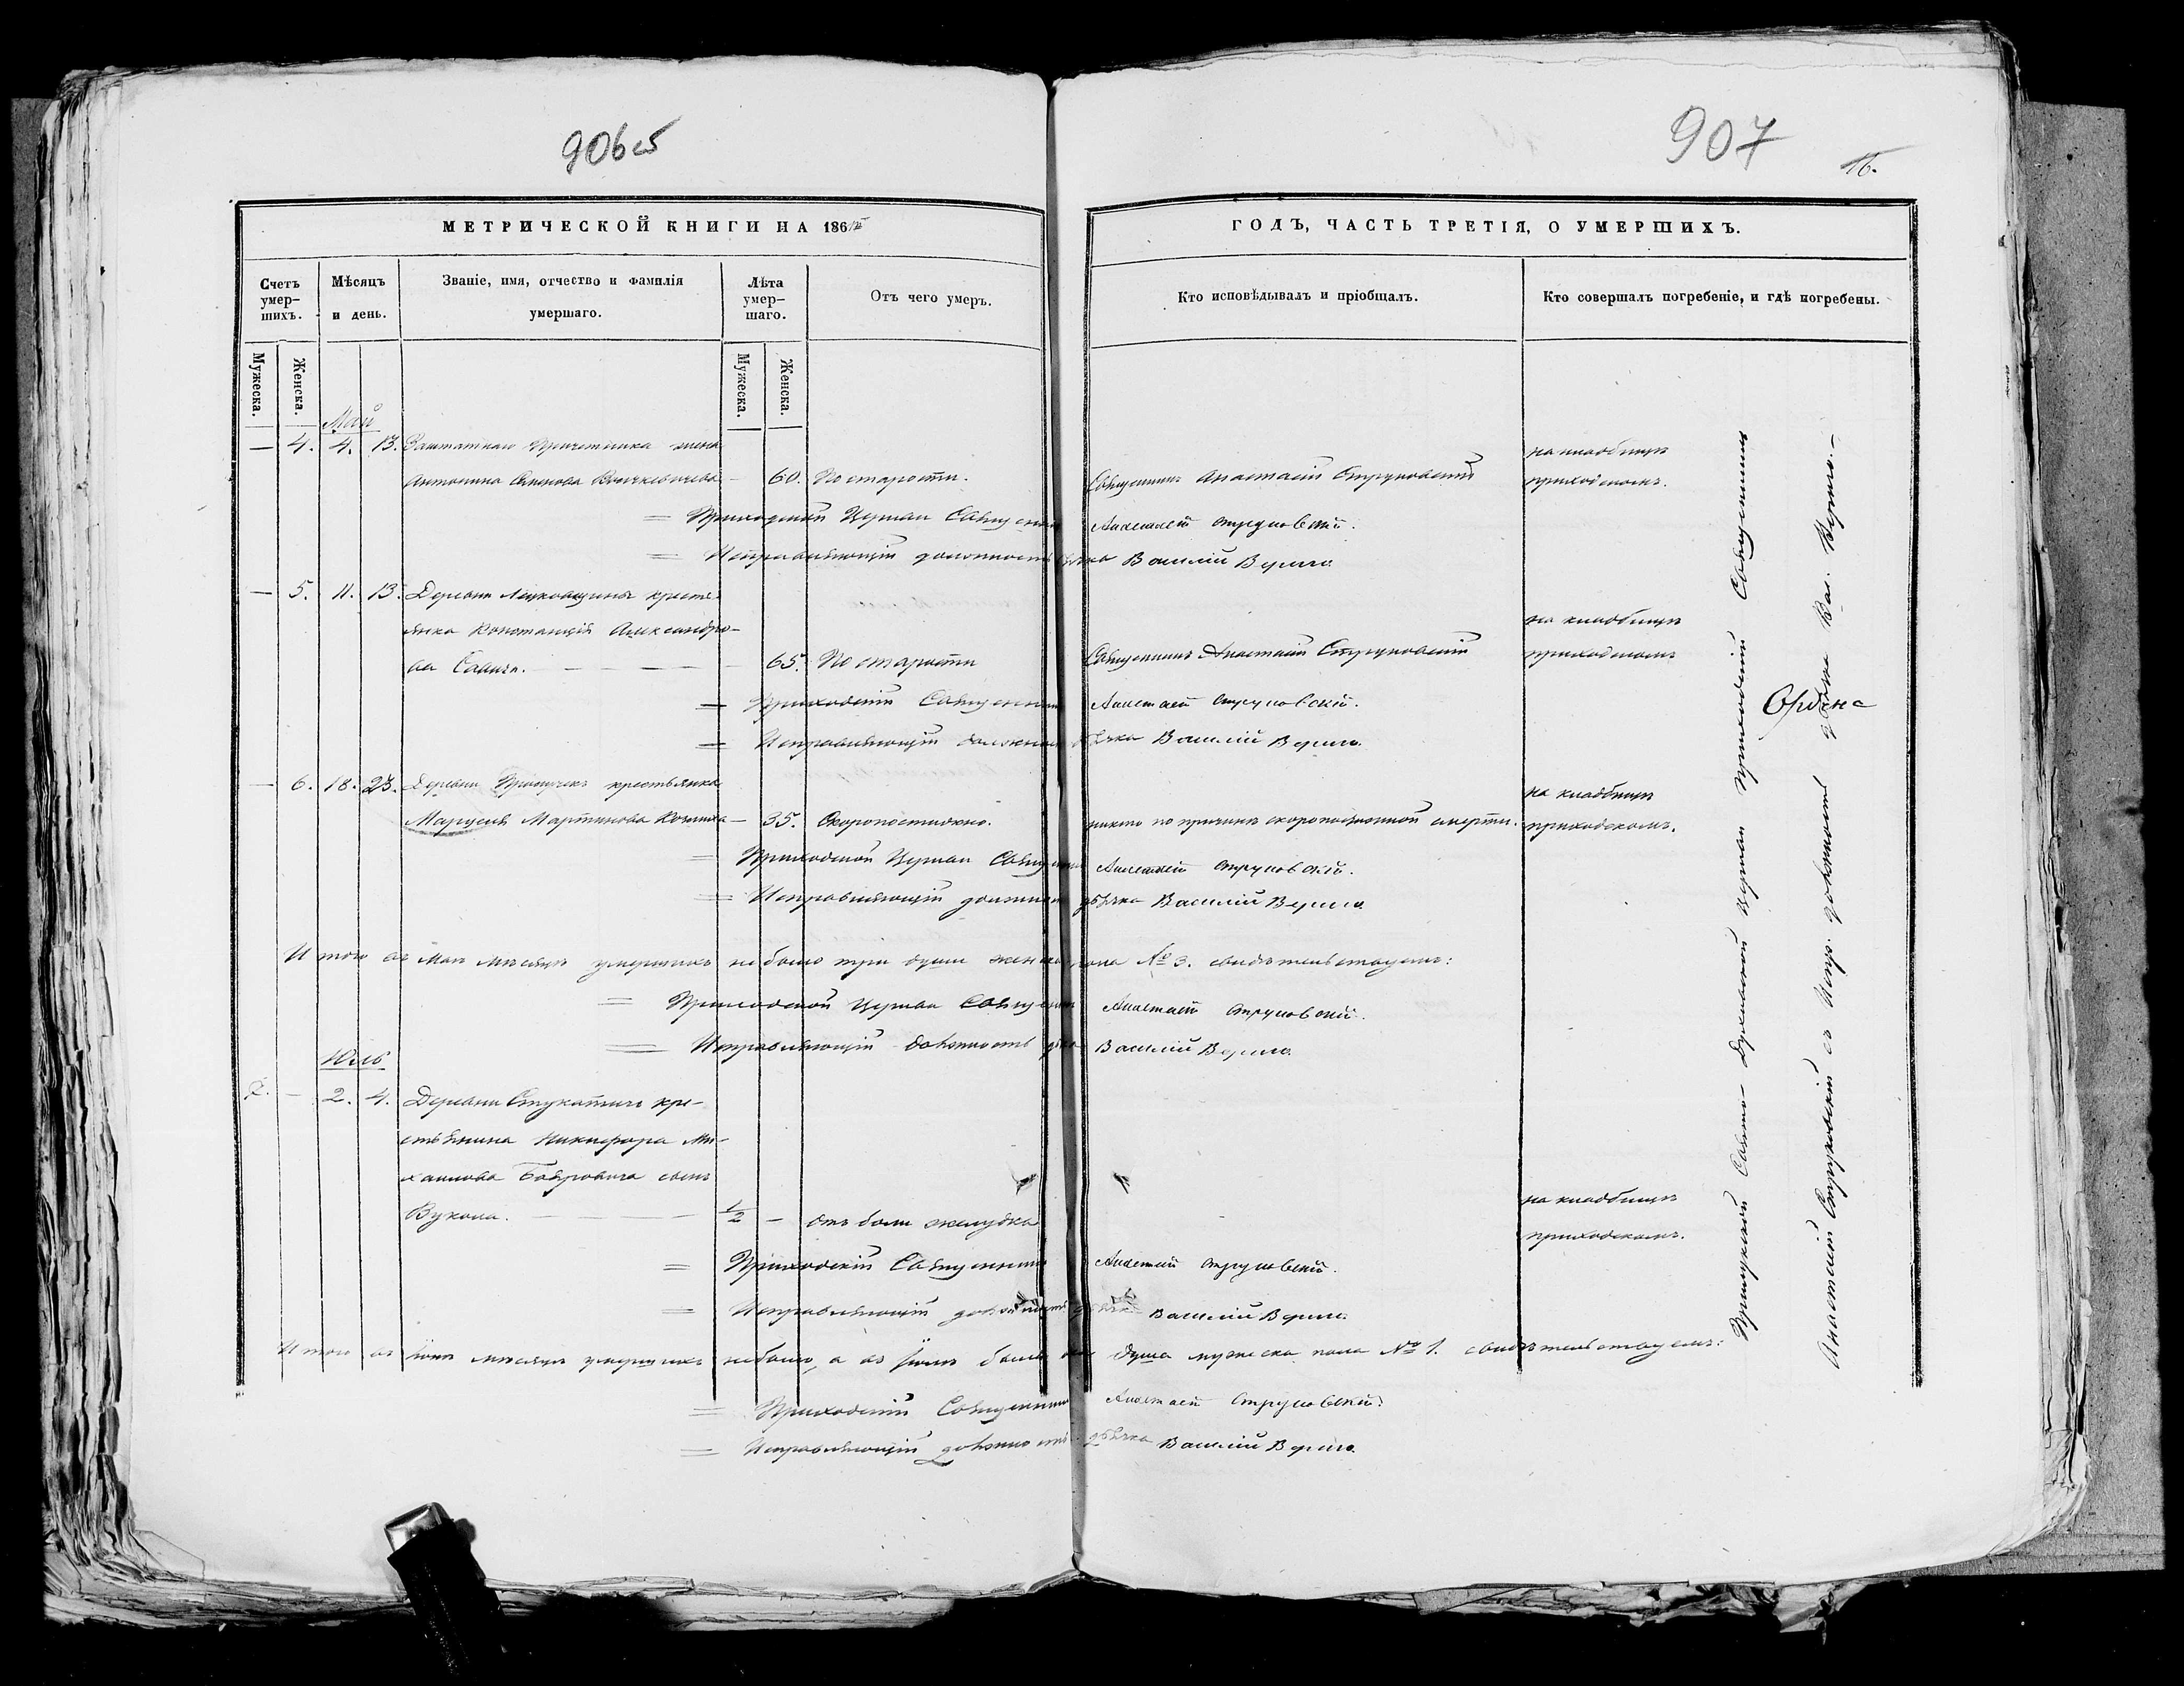 906 об
907
16.
МЕТРИЧЕСКОЙ КНИГИ НА 186
ГОДЪ, ЧАСТЬ ТРЕТІЯ, О УМЕРШИХЪ.
Счетъ умер-шихъ.
Мѣсяцъ и день.
Званіе, имя, отчество и фамилія умершаго.
Лѣта умер-шаго.
Отъ чего умеръ.
Кто исповѣдывалъ и пріобщалъ.
Кто совершалъ погребеніе, и гдѣ погребены.
Мужеска.
Женска.
Мужеска.
Женска.
Май
— 4. 4. 13. Заштатнаго Причетника жена
на кладбищѣ
Антонина Семенова — 60. По старости. Священникъ Анастасій Струковскій приходскомъ.
= Приходской Церкви Священникъ Анастасій Струковскій.
= Исправляющій должность дьячка Василій
— 5. 11. 13. Деревни крестья-
на кладбищѣ
янка Констанція Александро-
ва Савичъ. — 65. По старости Священникъ Анастасій Струковскій приходскомъ
= Приходскій Священникъ Анастасій Струковскій.
= Исправляющій должность дьячка Василій
— 6. 18. 23. Деревни крестьянка
на кладбищѣ
Марцеля Мартинова — 35. Скоропостижно. никто по причинѣ скоропостижной смерти. приходскомъ.
= Приходской Церкви Священникъ Анастасій Струковскій.
= Исправляющій должность дьячка Василій
Итого въ Маѣ мѣсяцѣ умершихъ было три души женска пола № 3. свидѣтельствуемъ:
= Приходской Церкви Священникъ Анастасій Струковскій.
= Исправляющій должность дьячка Василій
Юль
7. — 2. 4. Деревни Стукатичъ кре-
стьянина Никифора Ми-
хаилова сынъ
на кладбищѣ
Вукола. — 1/2 — отъ боли желудка
приходскомъ.
= Приходскій Священникъ Анастасій Струковскій.
= Исправляющій должность дьячка Василій
Итого въ Іюнѣ мѣсяцѣ умершихъ небыло, а въ Іюлѣ была душа мужеска пола № 1. свидѣтельствуемъ:
= Приходскій Священникъ Анастасій Струковскій.
= Исправляющій должность дьячка Василій
Свято-Духовской Церкви Приходскій Священникъ
Анастасій Струковскій съ Испр. должность дьячка Вас.